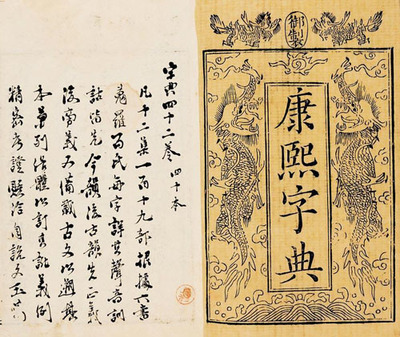 御製
康熙字典
字典四十二卷 四十本
凡十二集一百十九部根據六書
蒐羅百氏每字詳其聲音訓
詁皆先今韻後古韻先正義
後旁義又備載古文以溯
本兼列俗體以訂訛義例
精密考證賅洽自說文玉